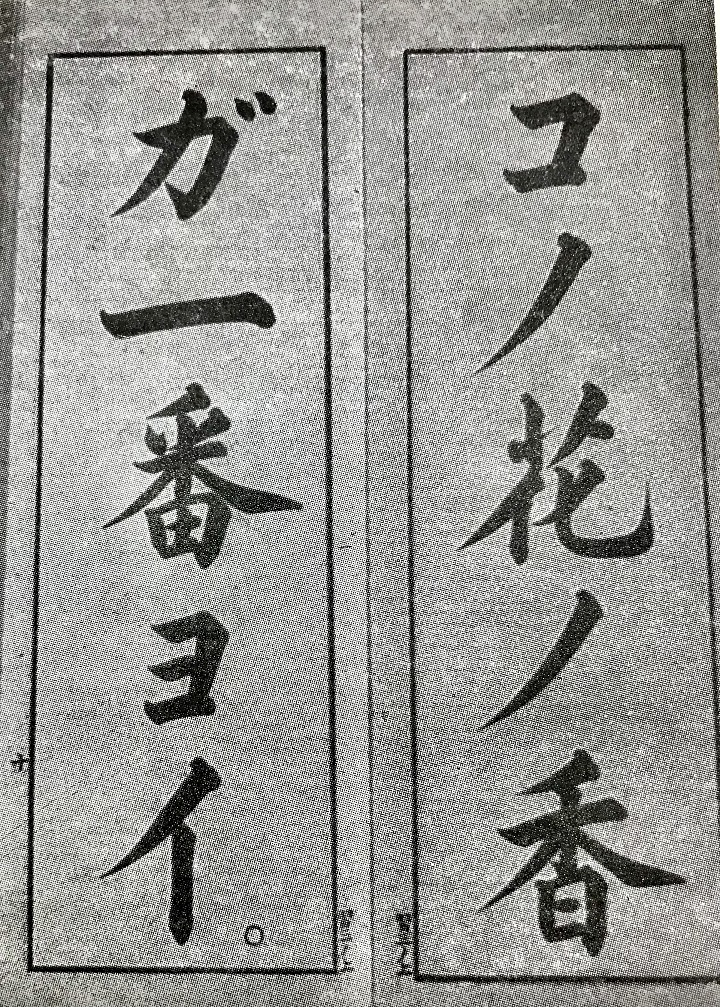 コノ花ノ香
ガ一番ヨイ